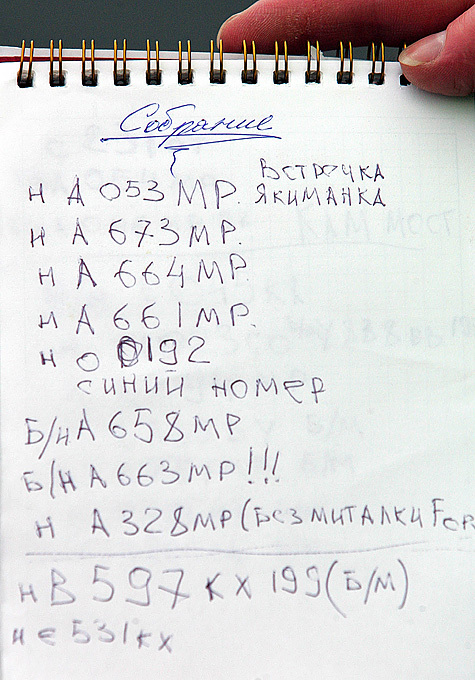 Собрание
Н А 053 МР. ВСТРЕЧКА
ЯКИМАНКА
Н А 673 МР.
Н А 664 МР.
Н А 661 МР.
Н О 0192
СИНИЙ НОМЕР
Б/Н А 658 МР
Б/Н А 663 МР!!!
Н А 328 МР (БЕЗ МИТАЛКИ FOR
Н В 597 КХ 199 (Б/М)
Н Е 531 КХ